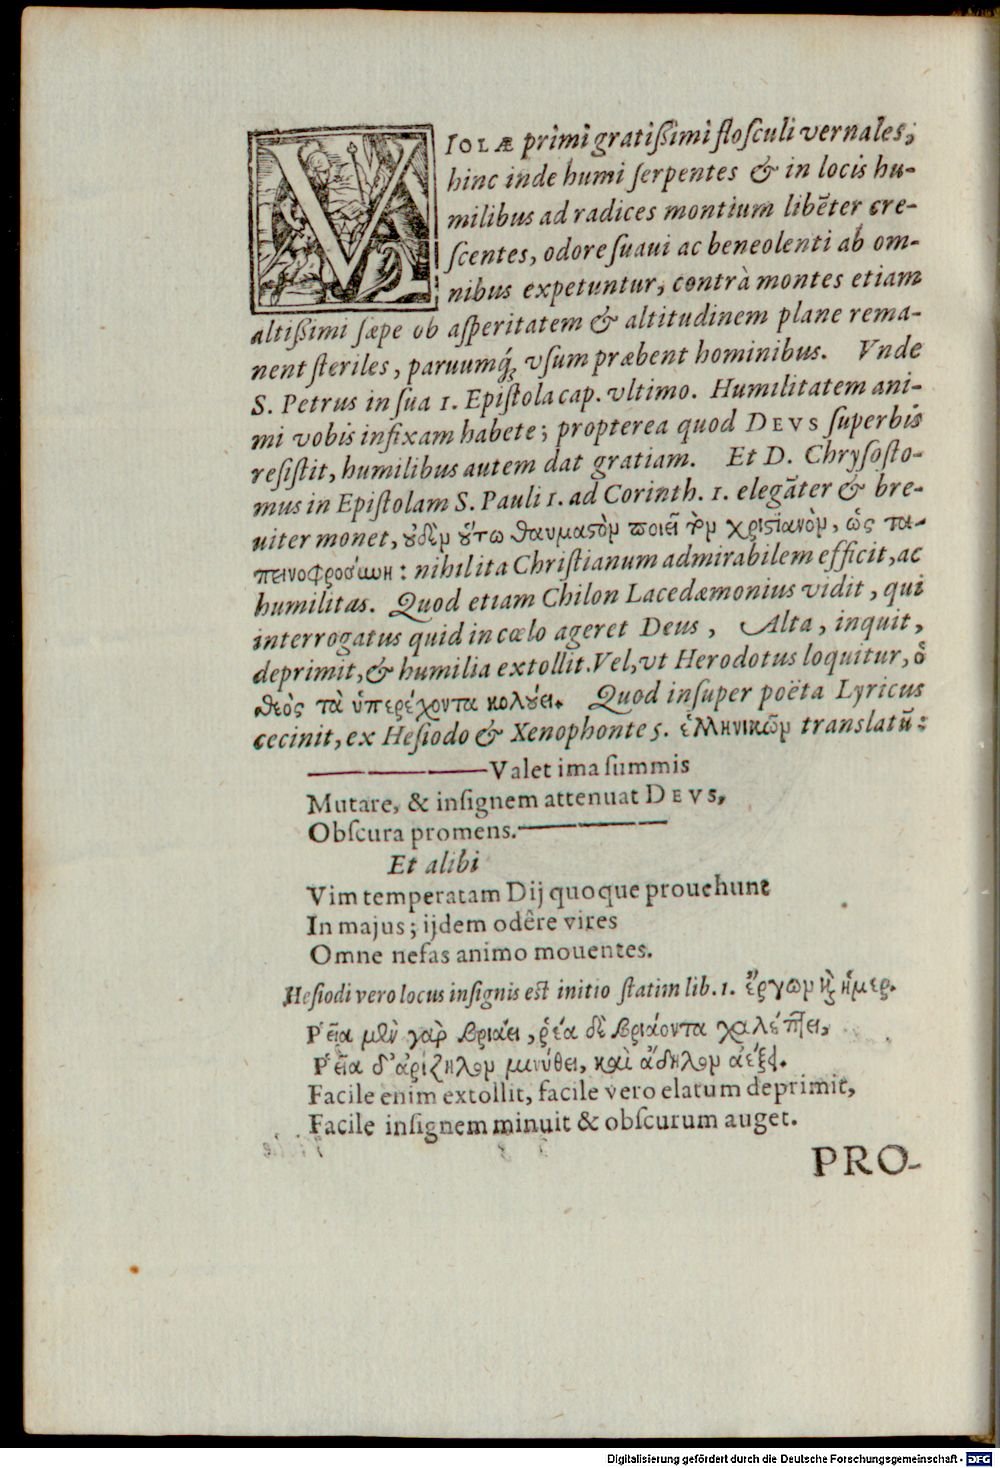 VIOLÆ primi gratißimi floſculi vernales,
hinc inde humi ſerpentes & in locis hu-
milibus ad radices montium libẽter cre-
ſcentes, odore ſuaui ac beneolenti ab om-
nibus expetuntur, contrà montes etiam
altißimi ſæpe ob aſperitatem & altitudinem plane rema-
nent ſteriles, paruumq́; vſum præbent hominibus. Vnde
S. Petrus in ſua 1. Epiſtola cap. vltimo. Humilitatem ani-
mi vobis infixam habete; propterea quod DEVS ſuperbis
reſiſtit, humilibus autem dat gratiam. Et D. Chryſoſto-
mus in Epiſtolam S. Pauli 1. ad Corinth. 1. elegãter & bre-
uiter monet, ȣ̓δὲν ȣ̔́τω θαυμαϛὸν ποιεῖ τὸν χριϛιανὸν, ὡς τα-
πεινοφροσύνη: nihil ita Chriſtianum admirabilem efficit, ac
humilitas. Quod etiam Chilon Lacedæmonius vidit, qui
interrogatus quid in cœlo ageret Deus, Alta, inquit,
deprimit, & humilia extollit. Vel, vt Herodotus loquitur, ὁ
θεὸς τὰ ὑπερέχοντα κολȣ́ει. Quod inſuper poëta Lyricus
cecinit, ex Heſiodo & Xenophonte 5. ἑλληνικῶν translatũ:
Valet ima ſummis
Mutare, & inſignem attenuat DEVS,
Obſcura promens.
Et alibi
Vim temperatam Dij quoque prouehunt
In majus; ijdem odêre vires
Omne nefas animo mouentes.
Heſiodi vero locus inſignis est initio ſtatim lib. 1. ἔργων κὴ ἡμερ.
Ρ῾εῖα μὲν γαρ βριάει, ῥέα δὲ βριάοντα χαλέπτει,
Ρ῾εῖα δ' ἀρίζηλον μινύθει, καὶ ἄδηλον ἀέξει.
Facile enim extollit, facile vero elatum deprimit,
Facile inſignem minuit & obſcurum auget.
PRO-
Digitalisierung gefördert durch die Deutsche Forschungsgemeinschaft - DFG